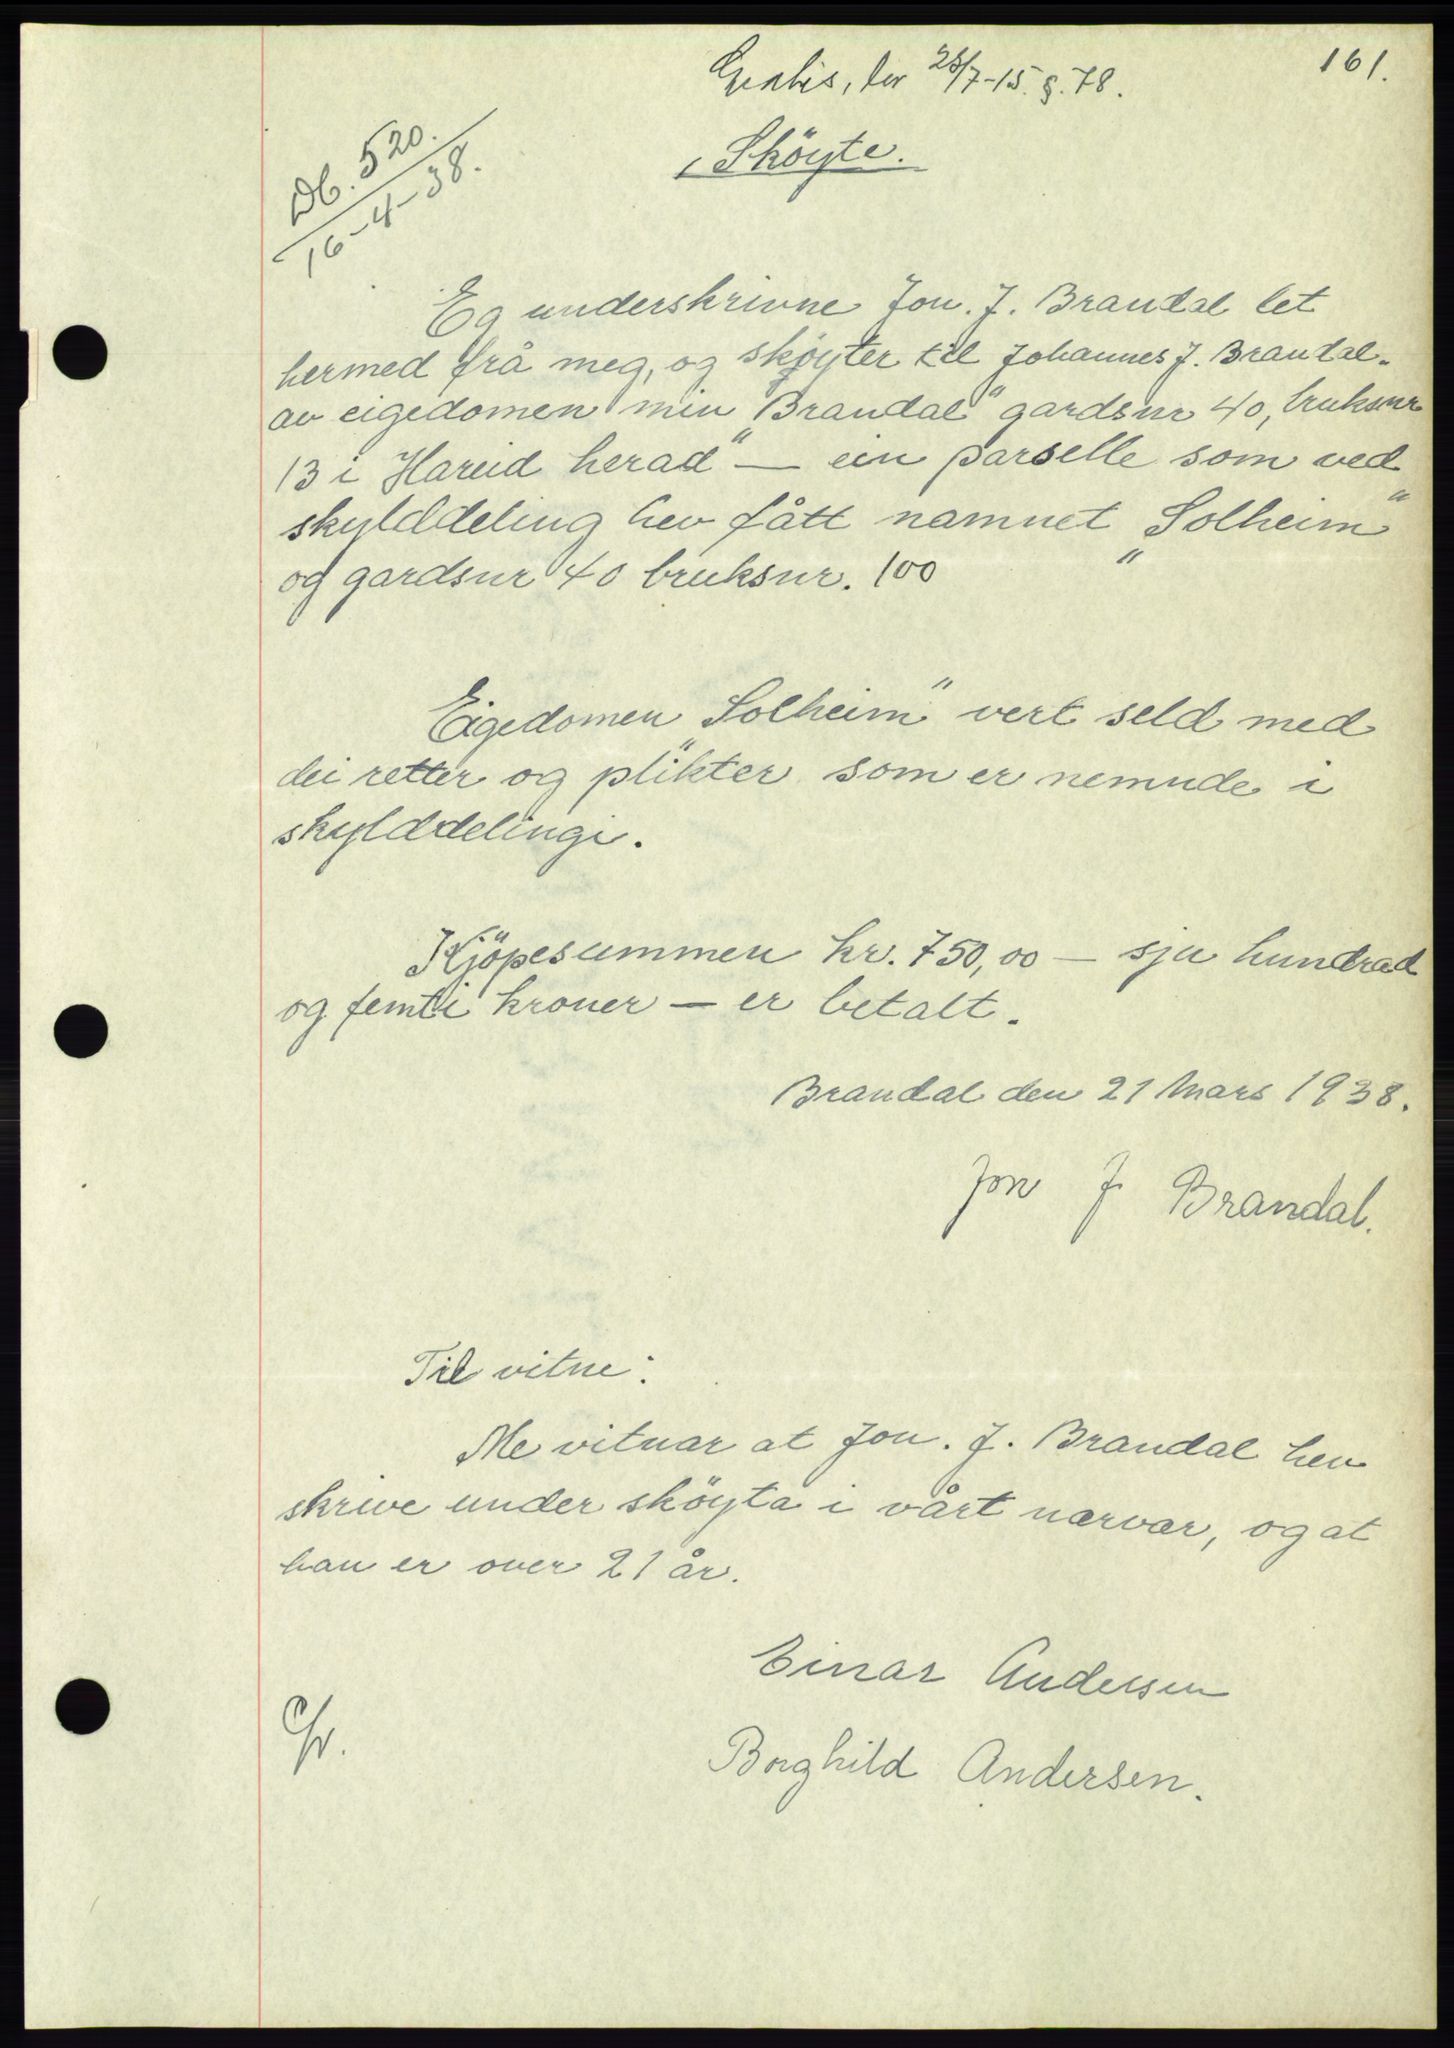 161.
Gratis, lov 28/7-15. §. 78.
Db. 520.
16-4-38.
Sköyte.
Eg underskrivne Jon. J. Brandal let
hermed frå meg, og skøyter til Johannes J. Brandal.
av eigedomen min „Brandal" gardsnr 40, bruksnr
13 i Hareid herad" — ein parselle som ved
skylddeling hev fått namnet „Solheim"
og gardsnr 40 bruksnr. 100
Eigedomen „Solheim" vert seld med
dei retter og plikter som er nemnde i
skylddelingi.
Kjöpesummen kr. 750,00 — sju hundrad
og femti kroner — er betalt.
Brandal den 21 Mars 1938.
Jon J. Brandal.
Til vitne:
Me vitnar at Jon. J. Brandal hev
skrive under sköyta i vårt nærvær, og at
han er over 21 år.
Einar Andersen
Borghild Andersen.